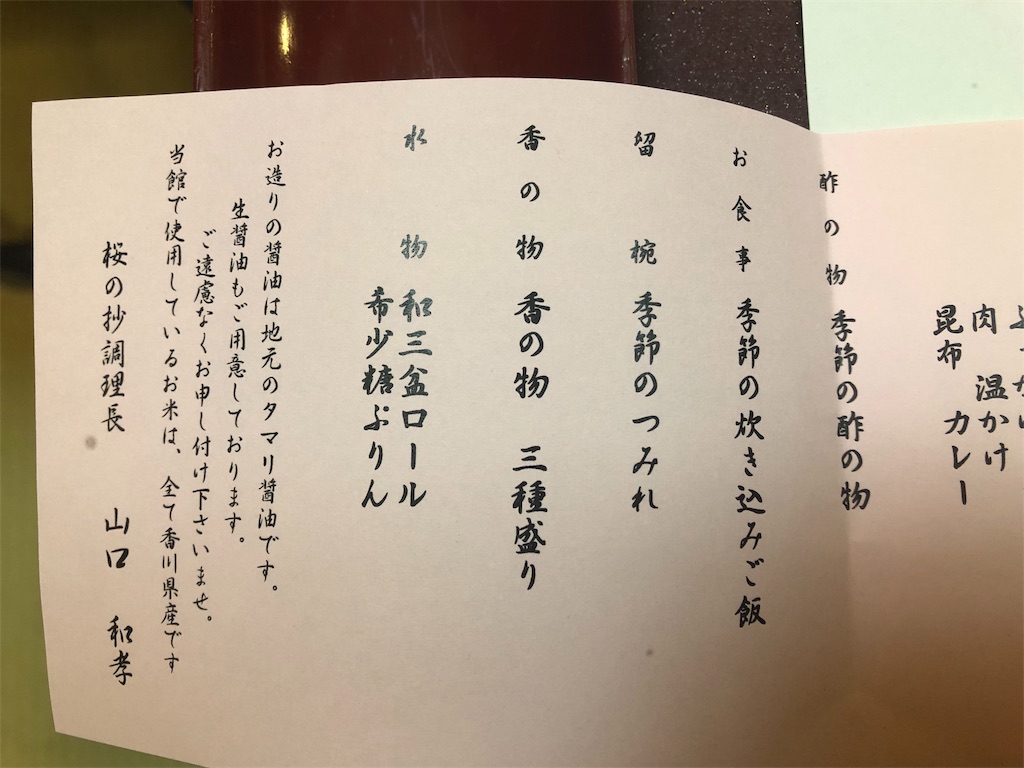 肉 温かけ
昆布 カレー
酢の物 季節の酢の物
お食事 季節の炊き込みご飯
留椀 季節のつみれ
香の物 香の物 三種盛り
水物 和三盆ロール
希少糖ぷりん
お造りの醤油は地元のタマリ醤油です。
生醤油もご用意しております。
ご遠慮なくお申し付け下さいませ。
当館で使用しているお米は、全て香川県産です
桜の抄調理長 山口 和孝